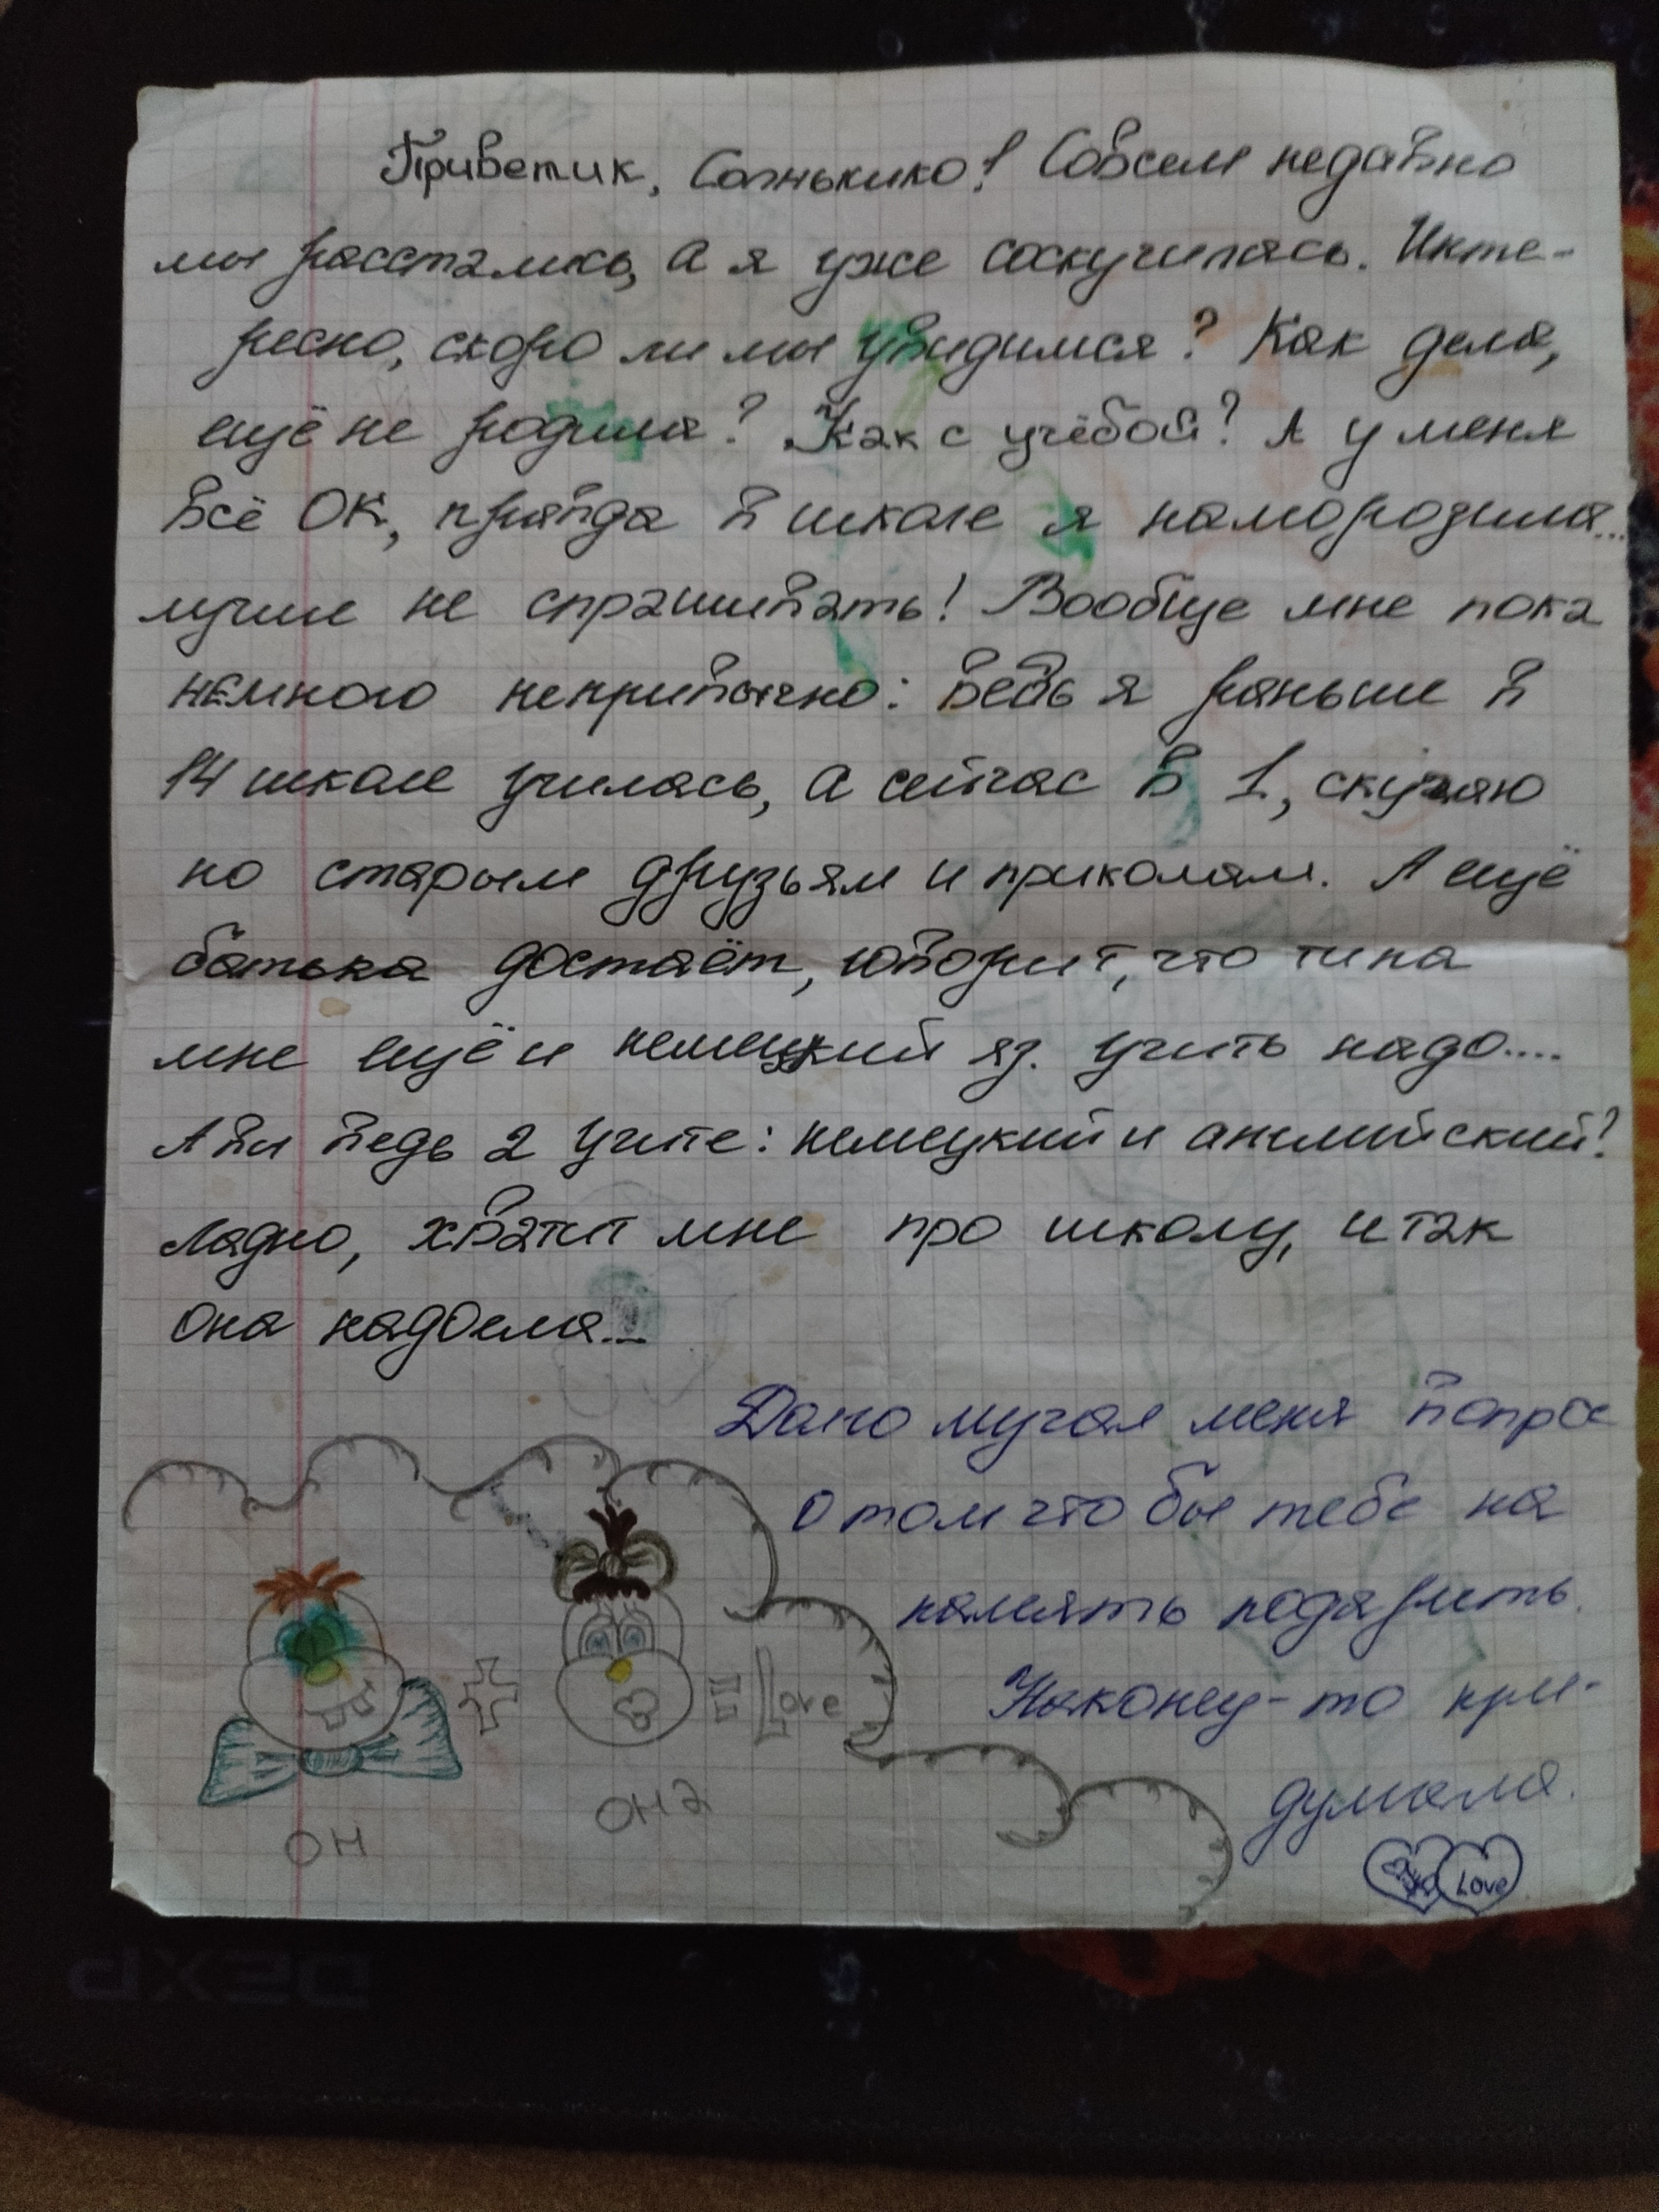 Приветик, Санькико! Совсем недавно
мы расстались, а я уже соскучилась. Инте-
ресно, скоро ли мы увидимся? Как дела,
ещё не родила? Как с учёбой? А у меня
всё ОК, правда в школе я наморозила...
лучше не спрашивать! Вообще мне пока
немного непривычно: ведь я раньше в
14 школе училась, а сейчас в 1, скучаю
по старым друзьям и приколам. А ещё
батька достаёт, говорит, что типа
мне ещё и немецкий яз. учить надо....
А вы ведь 2 учите: немецкий и английский?
Ладно, хватит мне про школу, и так
она надоела...
Дано мучал меня вопрос
о том что бы тебе на
память подарить.
Наконец-то при-
думала.
= Love
он
она
Love
DEXP